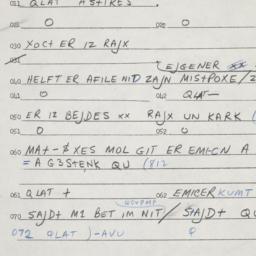 011 QLAT ASTIKES.
021 O 022 O
030 XOCT ER IZ RAJX
031
EJGENER xx
040 HELFT ER AFILE NIT ZAJN MISTPOXE/
041 O 042 QLAT—
050 ER IZ BEJDES xx RAJX UN KARK (
051 O 052 O
060 MAT-$XES MOL GIT ER EMICN A
= A G3STENK QU (812
061 QLAT + 062 EMICER KUMT
070 SAJD+ M1 BET IM NIT/ SAJD+ QU
072 QLAT )-AVU